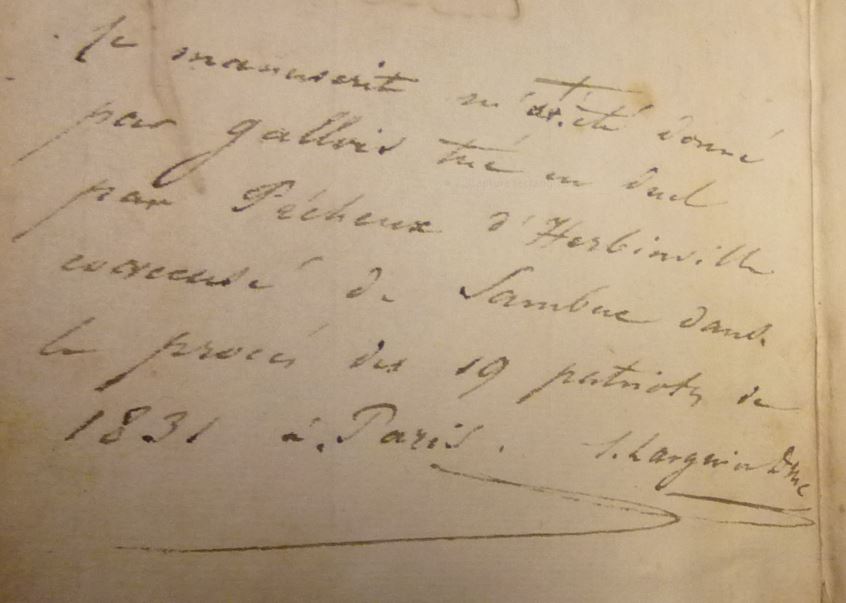 Ce manuscrit m'a été donné
par gallois tué en duel
par Pécheux d'Herbinville
coaccusé de Sambuc dans
le procès des 19 patriotes de
1831 à Paris.